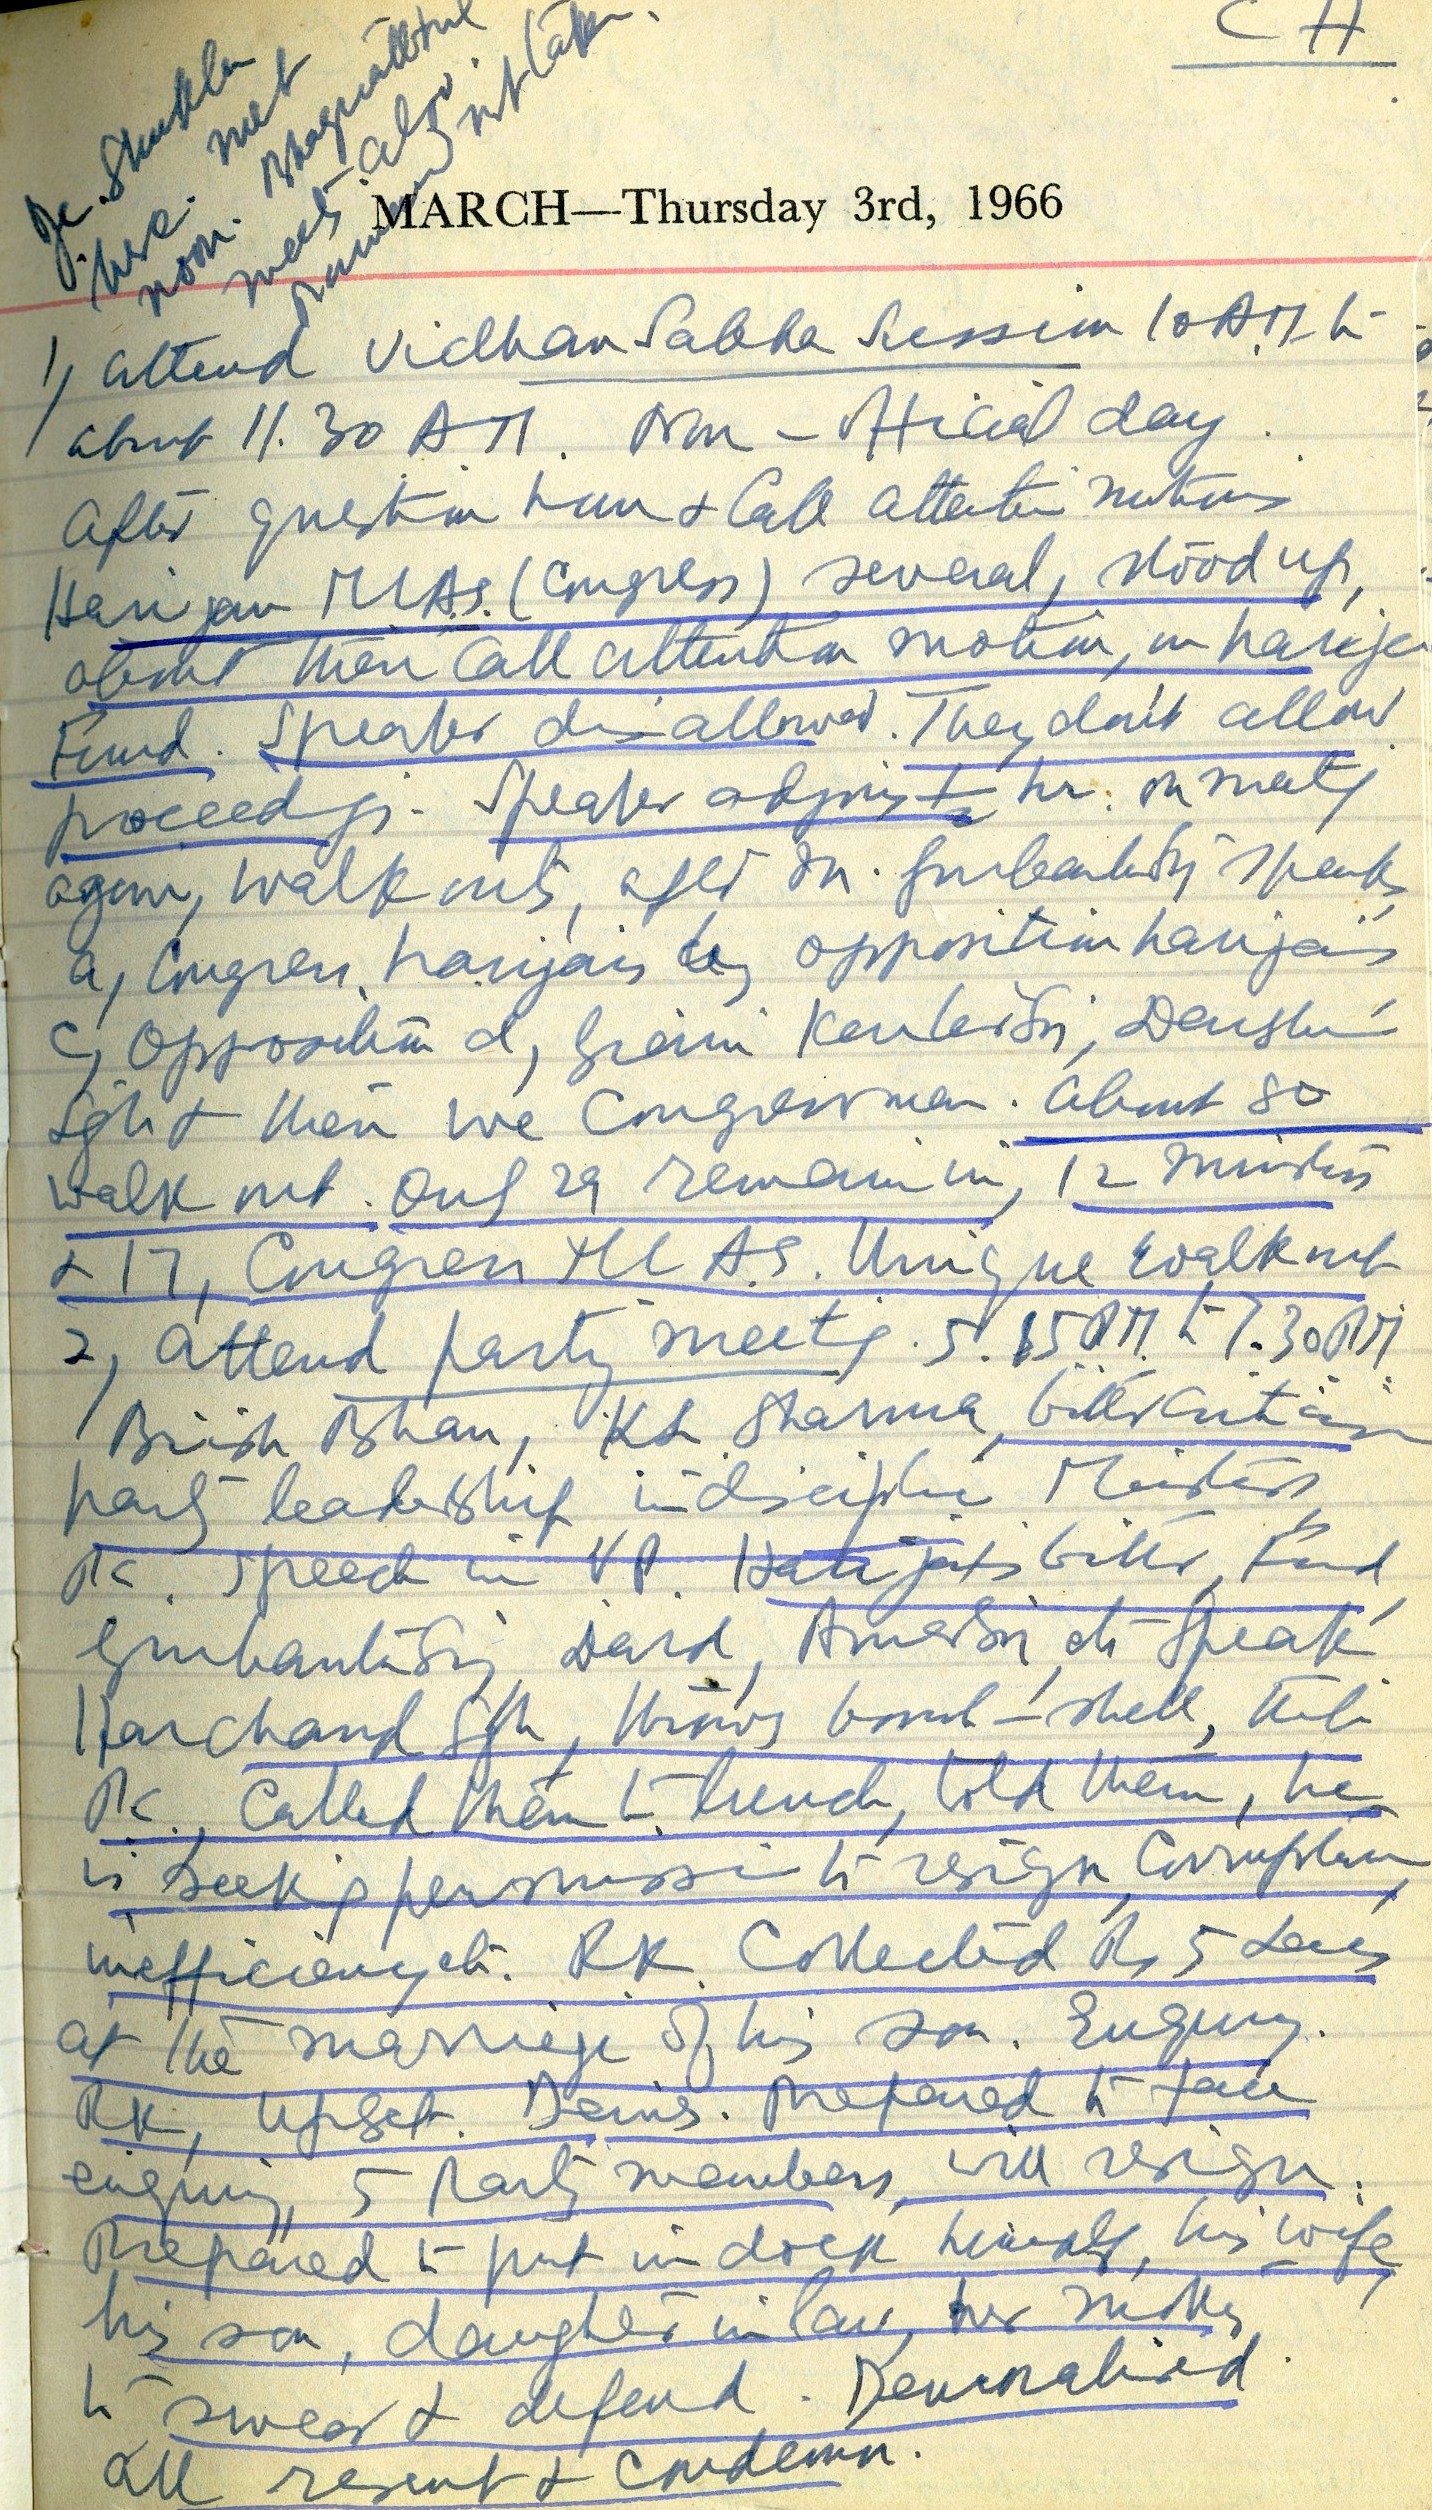 CH
Shukla
here. met
noon. Bhagrath
meets also.
not taken.
MARCH—Thursday 3rd, 1966
1, attend Vidhan Sabha Session 10 A.M. to
about 11.30 A M. Non-official day.
After question hour & Call attention motions
Harijan MLAs. (Congress) several, stood up,
about their call attention motion, on harijan
Fund. Speaker disallowed. They don't allow
proceedgs. Speaker adjourns ½ hr. on meetg
again, walk outs, after Dr. Gurbantasingh speaks,
a, Congress harijans b, opposition harijans
c, Opposition d, Giani Kartar Singh, Darshan
Sgh & then we Congressmen. about 80
walk out. Only 29 remain in, 12 ministers
& 17, Congress MLAS. Unique walkout
2, attend party meetg. 5.15 PM. to 7.30 PM
Brish Bhan, KL Sharma, bitter criticism
party leadership indiscipline Ministers,
RK. speech in VP. Harijans bitter, Fund,
Gurbanta Singh, Amar Singh, etc speak
Harchand Sgh, throws bomb-shell, that
RK., called them to lunch, told them, he
is seekig permission to resign, Corruption,
inefficiency etc. RK. Collected Rs 5 Lacs
at the marriage of his son. Enquiry.
RK, upset. Denies. Prepared to face
enquiry, 5 Party members, will resign.
Prepared to put in dock himself, his wife,
his son, daughter in law, her mother,
to swear & defend. Demoralised.
all resent & condemn.